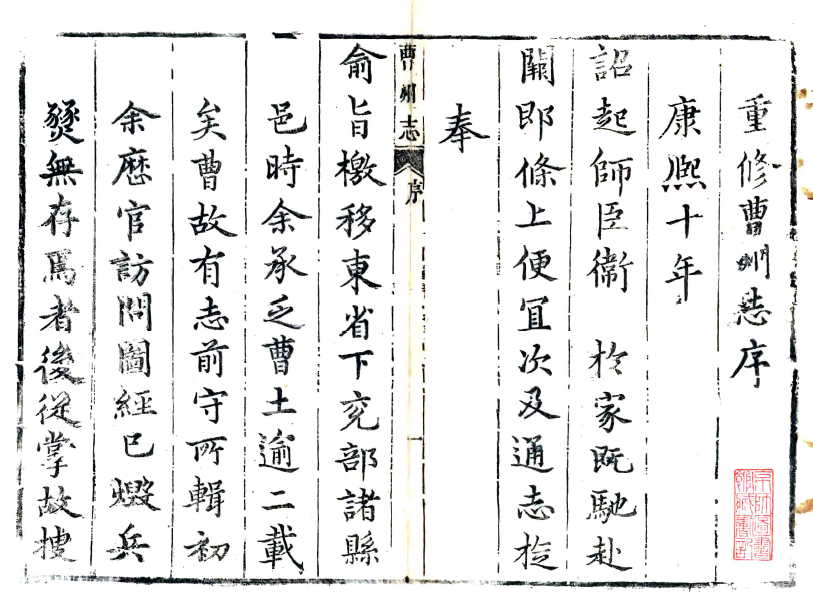 重修曹州志序
康熙十年
詔起師臣衞 於家既馳赴
闕即條上便宜次及通志於
奉
曹州志 序 一
俞旨檄移東省下兖部諸縣
邑時余承乏曹土逾二載
矣曹故有志前守所輯初
余歷官訪問圖經已燬兵
燹無存焉者後從掌故搜